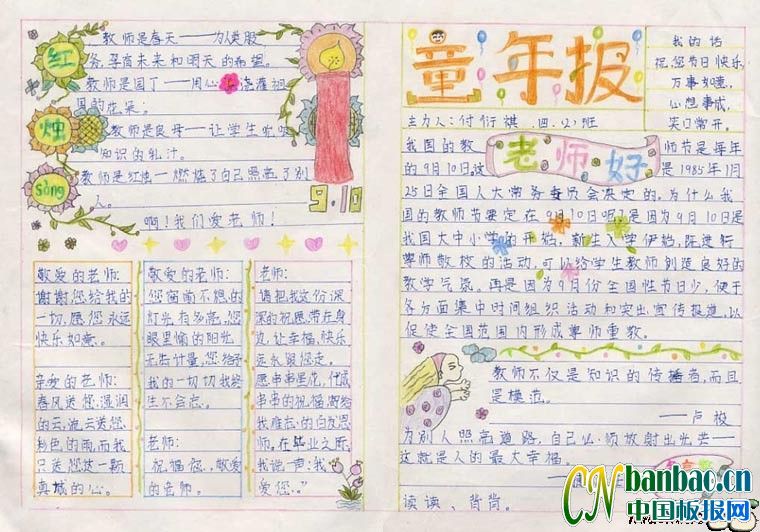 教师是春天——为人类服
务,孕育未来和明天的希望。
教师是园丁——用心浇灌祖
国的花朵。
教师是良母——让学生吮吸
知识的乳汁。
教师是红烛——燃烧了自己照亮了别
人。
啊!我们爱老师!
红
烛
Song
9.10
敬爱的老师:
谢谢您给我的
一切,愿您永远
快乐如意。
亲爱的老师:
春风送您湿润
的云,流云送您
彩色的雨,而我
只送您这一颗
真诚的心。
敬爱的老师:
灯光有多亮,您
眼里愉的阳光
无法计量,您给予
我的一切切我终
生不会忘。
老师:
祝福您,敬爱
的老师。
老师:
请把我这份深
深的祝愿带在身
边,让幸福、快乐
永永跟您走。
愿串串星花,化成
串串的祝福,寄给
我难忘的白发恩
师,在毕业之际
我说声:我
爱您."
童年报
主力人:付衍祺 四.
我的话
祝您节日快乐
万事如意,
心想事成,
笑口常开。
老师好
我国的教师节是每年
的9月10日,这是1985年1月
25日全国人大常务委员会决定的。为什么我
国的教师节要定在9月10日呢?是因为9月10日是
我国大中小学的开始,新生入学伊始,陈进行
尊师敬校的活动,可以给学生教师创造良好的
教学气氛。再是因为9月份全国性节日少,便于
各方面集中时间组织活动和突出宣传报道,以
促使全国范围内形成尊师重教。
教师不仅是知识的传播者,而且
是模范。
——卢梭
为别人照亮道路,自己必须放射出光芒——
这就是人的最大幸福。
读读、背背。
CNbanbao.cn
中国板报网